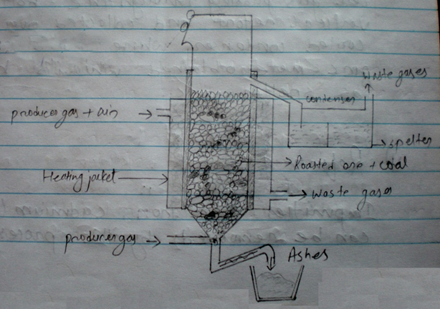 Waste gases
condenser
producer gas + air
spelter
Roasted ore + coal
Heating jacket
Waste gases
producer gas
Ashes